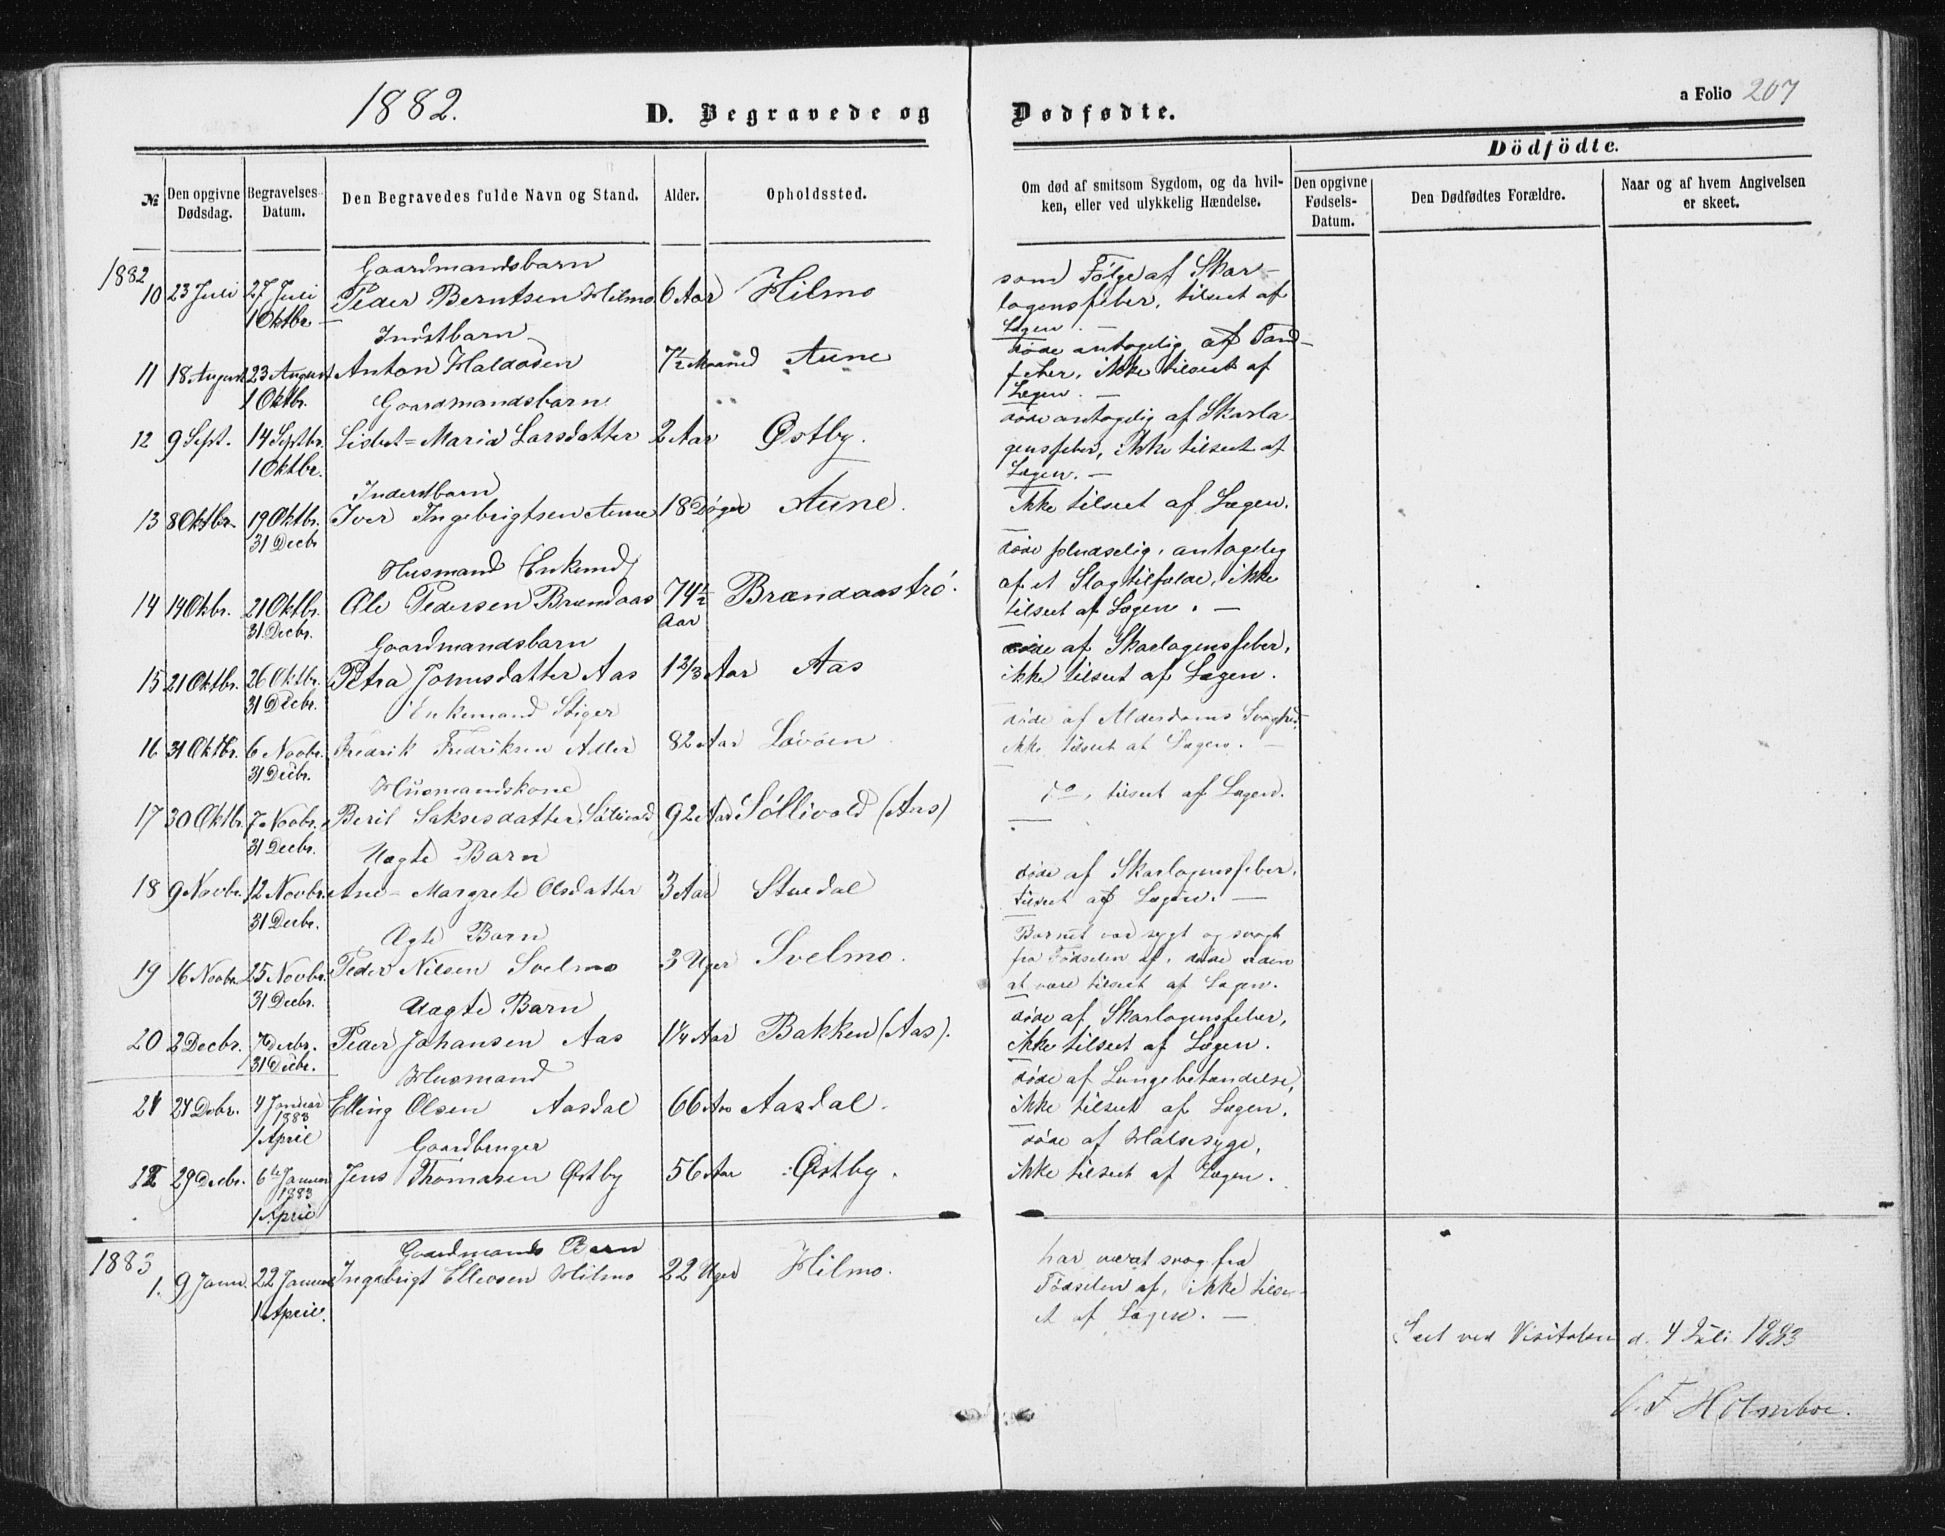 1882.
D. Begravede og Dødfødte.
a Folio 207
Dödfödte.
№
Den opgivne Dødsdag.
Begravelses-Datum.
Den Begravedes fulde Navn og Stand.
Alder.
Opholdssted.
Om død af smitsom Sygdom, og da hvil-
ken, eller ved ulykkelig Hændelse.
Den opgivne Fødsels-Datum.
Den Dødfødtes Forældre.
Naar og af hvem Angivelsen er skeet.
1882
Gaardmandsbarn som Følge af Skar-
10 23 Juli 27 Juli Peder Berntsen Hilmo 6 Aar Hilmo lagensfeber, tilseet af
1 Oktbr. Lægen. —
Indstbarn døde antagelig af Tand-
11 18 August 23 August Anton Haldosen 7½ Maaned Aune feber, ikke tilseet af
1 Oktbr. Lægen. —
Gaardmandsbarn døde antagelig af Skarla
12 9 Sept. 14 Septbr. Lisbet=Maria Larsdatter 2 Aar Østby. gensfeber, ikke tilseet af
1 Oktbr. Lægen. —
Inderstbarn
13 8 Oktbr. 19 Oktbr. Iver Ingebrigtsen Aune 18 Døger Aune. ikke tilseet af Lægen.
31 Decbr
Husmand (Enkemd) døde pludselig, antagelig
14 14 Okbr. 21 Oktbr. Ole Pedersen Brændaas 74½ Aar Brændaastrø. af et Slagtilfælde, ikke
31 Decbr. tilseet af Lægen. —
Gaardmandsbarn døde af Skarlagensfeber,
15 21 Oktbr. 26 Oktbr. Petra Jonusdatter Aas 1 2/3 Aar Aas ikke tilseet af Lægen.
31 Decbr.
Enkemand Stiger døde af Alderdoms Svaghed
16 31 Oktbr. 6 Novbr. Fredrik Fredriksen Aller 82 Aar Løvøen ikke tilseet af Lægen. —
31 Decbr.
Husmandskone do, tilseet af Lægen.
17 30 Oktbr. 7 Novbr. Berit Saksesdatter Sølivold 92 Aar Søllivold (Aas)
31 Decbr.
Uægte Barn døde af Skarlagensfeber,
18 9 Novbr. 12 Novbr. Ane-Margrete Olsdatter 3 Aar Stuedal tilseet af Lægen. —
31 Decbr.
Ægte Barn Barnet var sygt og svagt
19 16 Novbr. 25 Novbr. Peder Nilsen Svelmo 3 Uger Svelmo. fra Fødselen af, døde uden
31 Decbr. at være tilseet af Lægen.
Uægte Barn døde af Skarlagensfeber,
20 2 Decbr. 7 Decbr. Peder Johansen Aas 1¼ Aar Bakken (Aas). ikke tilseet af Lægen.
31 Decbr.
Husmand døde af Lungebetændelse,
21 24 Decbr. 4 Januar 1883 Elling Olsen Aasdal 66 Aar Aasdal. ikke tilseet af Lægen.
1 April
Gaardbruger døde af Halssyge,
22 29 Decbr. 6te Januar 1883 Jens Thomasen Østby 56 Aar Østby. ikke tilseet af Lægen.
1 April
1883
Gaardmands Barn har været svag fra
1. 9 Janr. 22 Januar Ingebrigt Ellevsen Hilmo 22 Uger Hilmo. Fødselen af, ikke tilse-
1 April. et af Lægen. —
Seet ved Visitatsen d. 4 Juli 1883
C. F Holmboe.